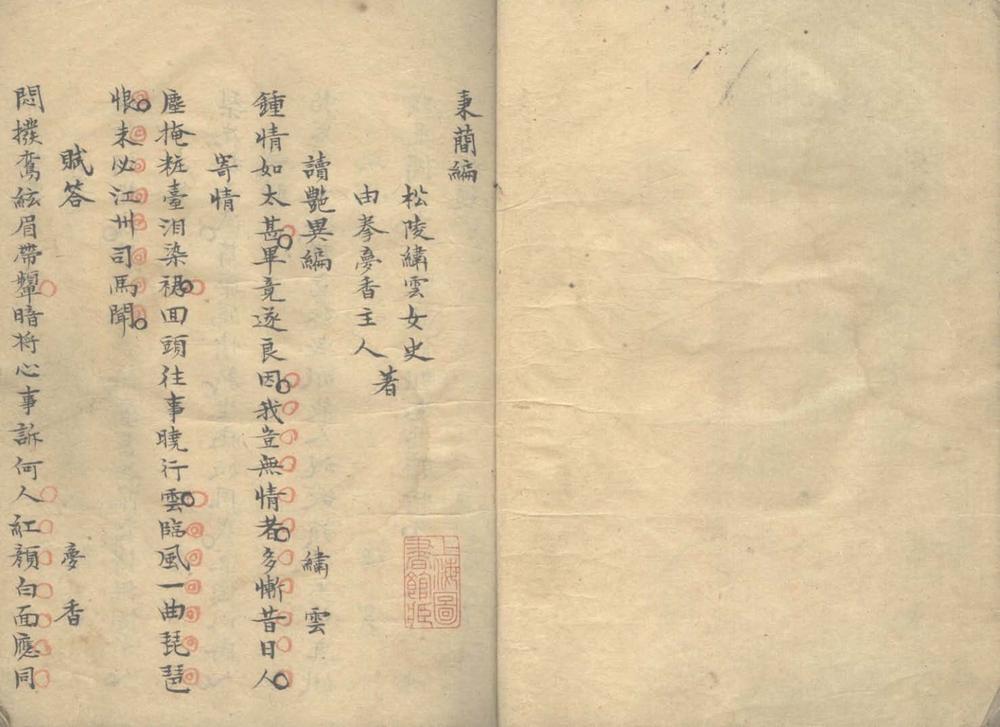 秉蕑編
松陵繡雲女史
由拳夢香主人
著
讀艷異編 繡雲
鍾情如太甚畢竟遂良因我豈無情者多慚昔日人
寄情
塵掩粧臺泪染裙回頭往事曉行雲臨風一曲琵琶
恨未必江州司馬聞
賦答 夢香
悶撥鸞絃眉帶顰暗將心事訴何人紅顏白面應同
上海圖書館藏